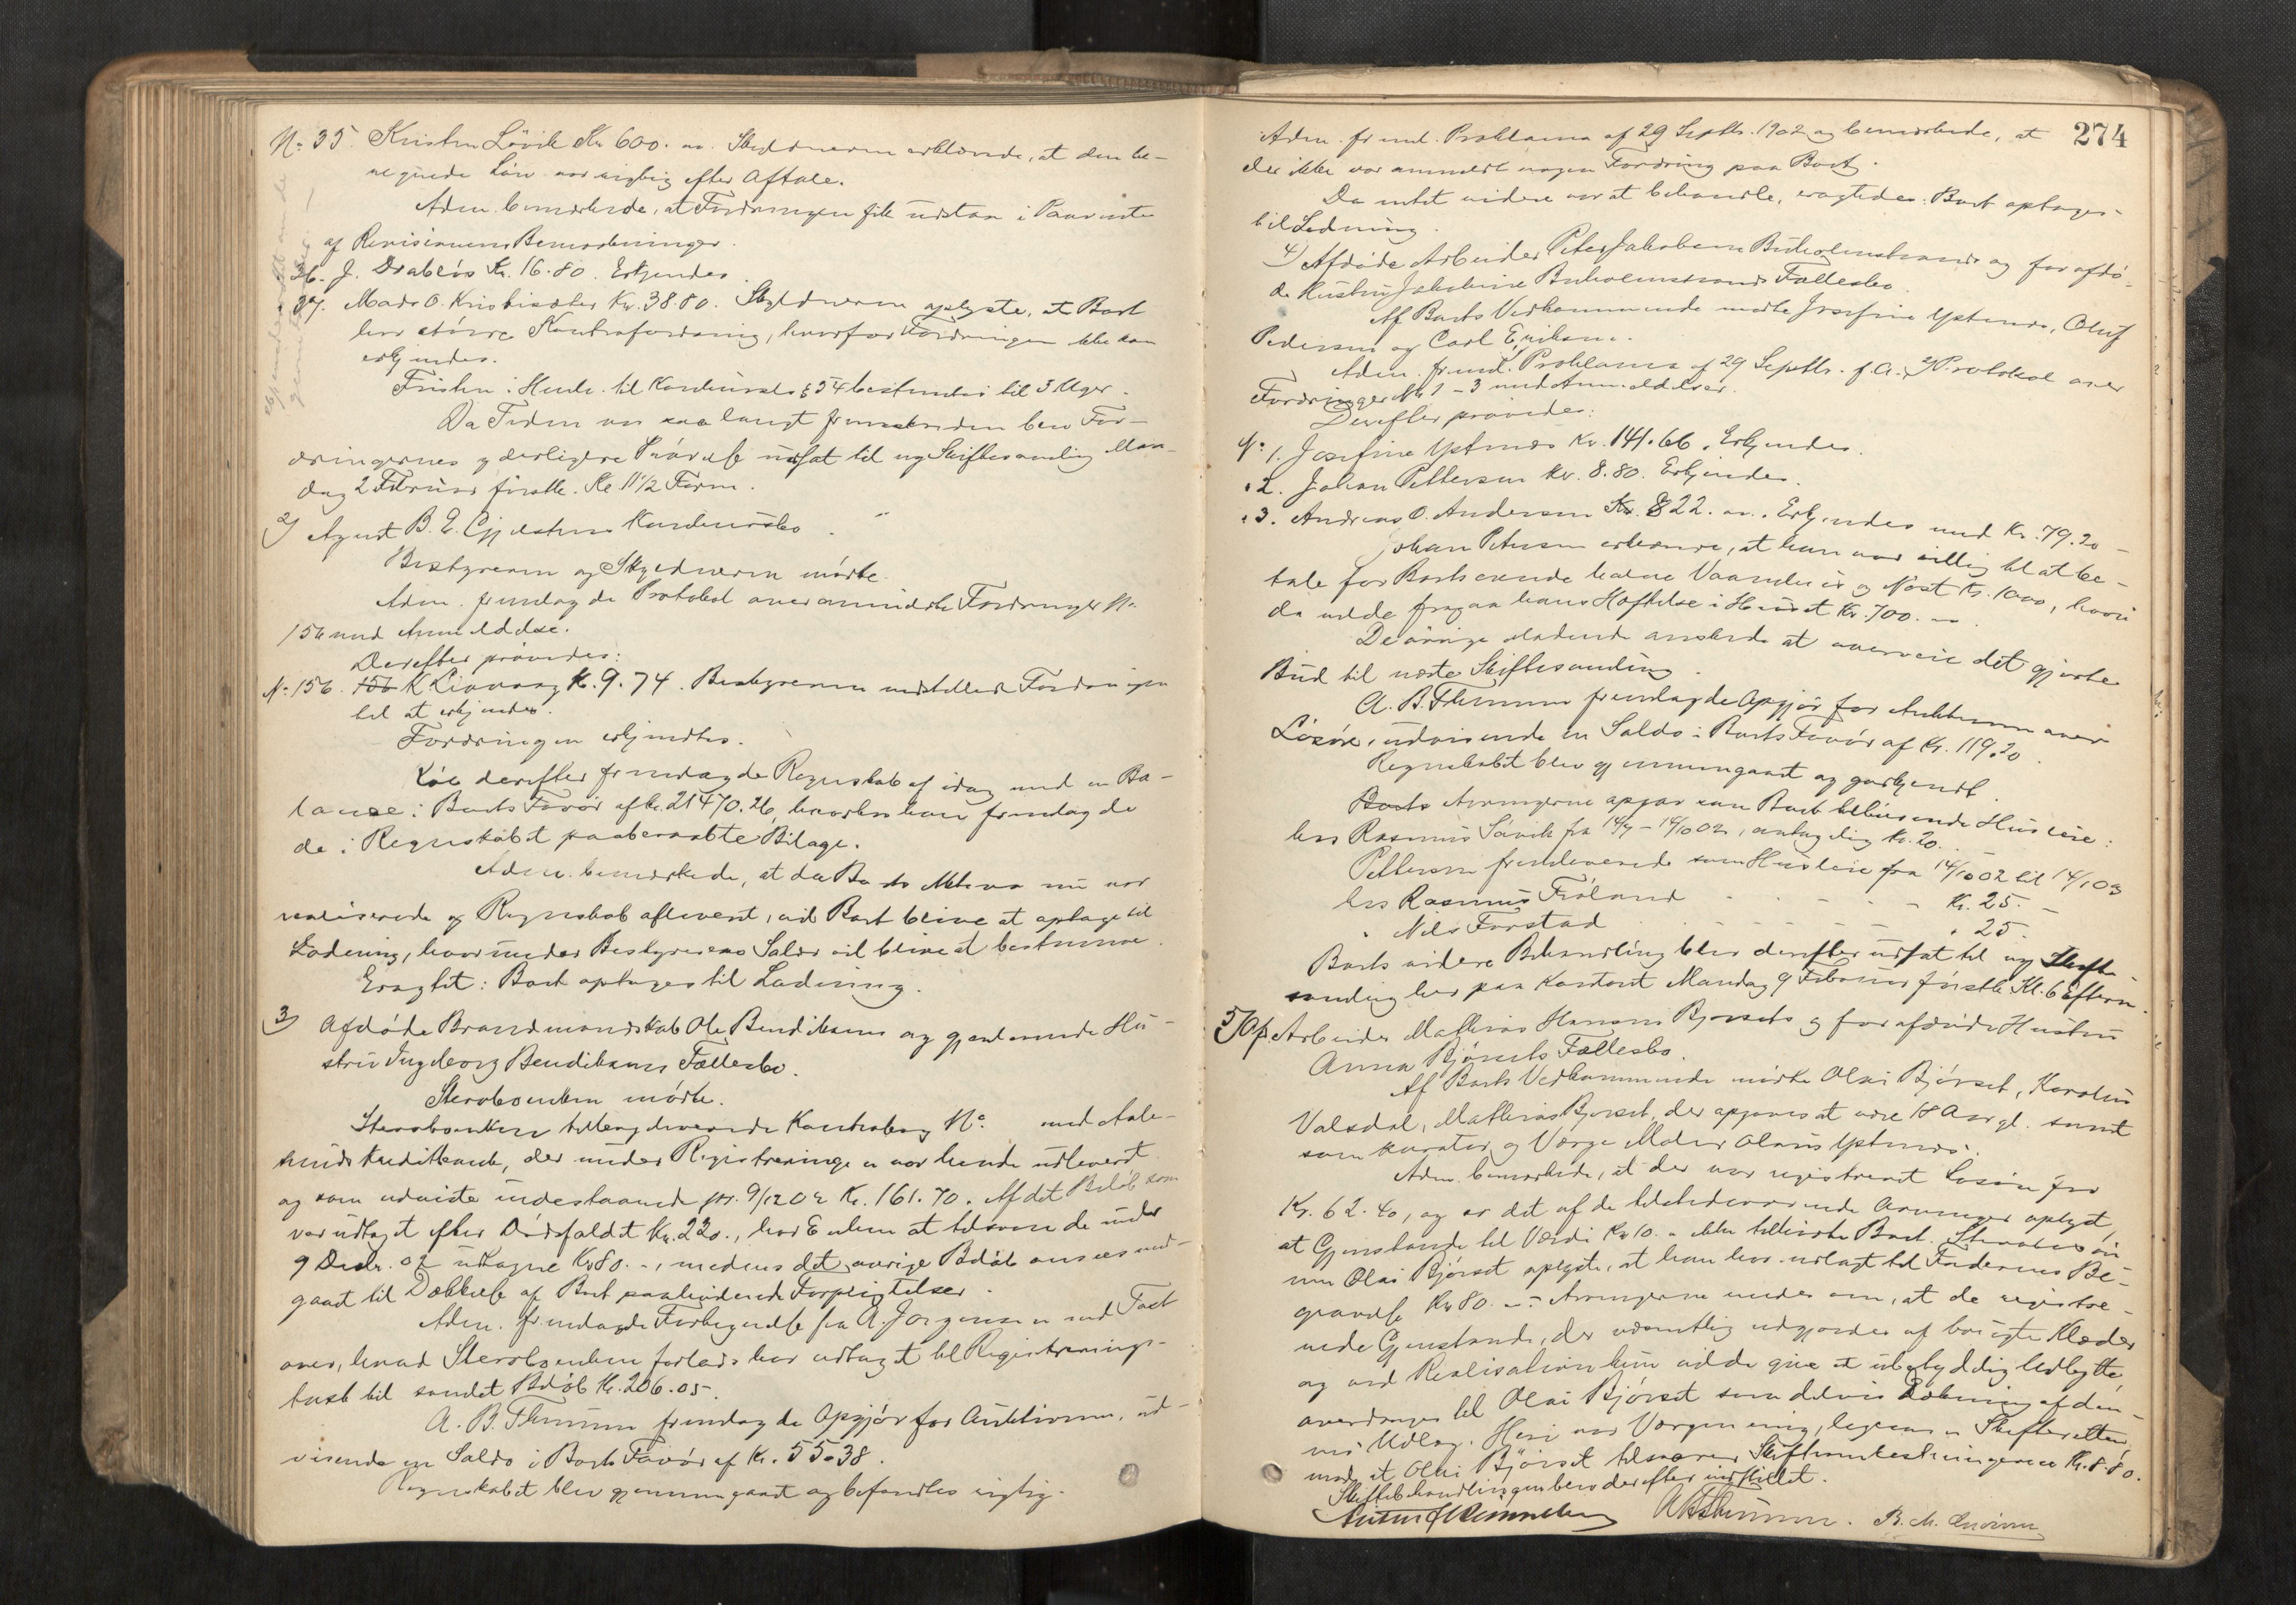 No 35. Kristen Lövik Kr 600. " Skyldneren erklærede, at den be-
regnede Lön var rigtig efter Aftale.
Adm. bemærkede, at Fordringen fik udstaa i Paavente
af Revisionens Bemærkninger.
36. J. Drabløs Kr. 16.80. Erkjendes
37. Mads O. Kristisæter Kr. 38.80. Skyldneren oplyste, at Boet
har större Kontrafordring, hvorfor Fordringen ikke kan
erkjendes.
Fristen i Henh. til Konkursl. § 54 bestemtes til 3 Uger.
Da Tiden var saa langt fremskreden blev For-
dringernes yderligere Prövelse udsat til ny Skiftesamling Man-
dag 2 Februar förstk. Kl 11 1/2 Form.
2) Agent B. E. Gjelstens Konkursbo.
Bestyreren og Skyldneren mödte.
Adm. fremlagde Protokol over anmeldte Fordringer No
156 med Anmeldelse.
Derefter prövedes:
No 156. K Liavaag Kr. 9.74. Bestyreren indstillede Fordringen
til at erkjendes.
Fordringen erkjendtes.
derefter fremlagde Regnskab af idag med en Ba-
lance i Boets Favör af Kr. 21470.26, hvorhos han fremlagde
de i Regnskabet paaberaabte Bilage.
Adm. bemærkede, at da Boets Aktiva nu var
realiserede og Regnskab afleveret, vil Boet blive at optage til
Lodning, hvorunder Bestyrerens Salær vil blive at bestemme.
Eragtet: Boet optages til Lodning.
3) Afdöde Brandmandskab Ole Bendiksens og gjenlevende Hu-
stru Ingeborg Bendiksens Fællesbo.
Stervboenken mödte.
Stervboenken tilbageleverede Kontrabog No med Aale-
sunds Kreditbank, der under Registreringen var hende udleveret
og som udviste indestaaende pr. 9/12 02 Kr. 161.70. Af det Belöb som
var udtaget efter Dödsfaldet Kr. 220., har Enken at tilsvare de under
9 Decbr. 02 udtagne Kr 80. –, medens det övrige Belöb ansees med-
gaaet til Dækkelse af Boet paahvilende Forpligtelser.
Adm. fremlagde Forbegjendelse fra A. Jörgensen med Taxt
over, hvad Stervboenken forlods har udtaget til Registrerings-
taxt til samlet Belöb Kr. 206.05.
A. B. Flemmen fremlagde Opgjör for Auktionen, ud-
visende en Saldo i Boets Favör af Kr. 55.38.
Regnskabet blev gjennemgaaet og befandtes rigtig.
274
Adm. freml. Proklama af 29 Septbr. 1902 og bemærkede, at
der ikke var anmeldt nogen Fordring paa Boet.
Da intet videre var at behandle, eragtedes: Boet optages
til Lodning.
4) Afdöde Arbeider Peter Jakobsen Buholmstrands og forafdö-
de Hustru Jakobine Buholmstrands Fællesbo.
Af Boets Vedkommende mödte Josefine Ystenes, Oluf
Pedersen og Carl Eriksen.
Adm. freml. Proklama af 29 Septbr. f. A. 2) Protokol over
Fordringer No 1 – 3 med Anmeldelser.
Derefter prövedes:
No 1. Josefine Ystenes Kr. 141.66. Erkjendes.
" 2. Johan Pettersen Kr. 8.80. Erkjendes.
" 3. Andreas O. Andersen Kr. 822. ". Erkjendes med Kr. 79.20 –
Johan Petersen erklærede, at han var villig til at be-
tale for Boets eiende halve Vaaningshus og Nöst Kr. 1000, hvori
da vilde fragaa hans Heftelse i Huset Kr. 700. –
De övrige mödende önskede at overveie det gjorte
Bud til næste Skiftesamling.
A. B. Flemmen fremlagde Opgjör for Auktionen over
Lösöre, udvisende en Saldo i Boets Favör af Kr. 119.20.
Regnskabet blev gjennemgaaet og godkjendt.
Arvingerne opgav som Boet tilkommende Husleie:
hos Rasmus Sövik fra 14/7 – 14/10 02, antagelig Kr. 20.
Pettersen fremleverede som Husleie fra 14/10 02 til 14/1 03
hos Rasmus Fröland Kr. 25. –
" Nils Forstad " 25.
Boets videre Behandling blev derefter udsat til ny Skifte-
samling her paa Kontoret Mandag 9 Februar förstk. Kl. 6 Efterm.
5) Arbeider Mathias Hansen Bjørsets og forafdöde Hustru
Anna Bjørsets Fællesbo.
Af Boets Vedkommende mödte Olai Bjørset, Karoline
Valsdal, Mathias Bjørset, der opgaves at være 18 Aar gl. samt
som Kurator og Værge Maler Olaus Ystenes.
Adm. bemærkede, at der var registreret Lösöre for
Kr. 62.40, og er det af de tilstedeværende Arvinger oplyst,
at Gjenstande til Værdi Kr 10. – ikke tilhörte Boet.
Olai Bjørset oplyste, at han har udlagt til Faderens Be-
gravelse Kr 80. –: Arvingerne enedes om, at de registre-
rede Gjenstande, der væsentlig udgjordes af brugte Klæder
og ved Realisation kun vilde give et ubetydelig Udbytte
overdrages til Olai Bjørset som delvis Dækning af den-
nes Udlæg. Heri var Værgen enig, ligesom Skifteretten,
mod at Olai Bjørset tilsvarer Skifteomkostningerne Kr. 8.80.
Skiftebehandlingen blev derefter indstillet.